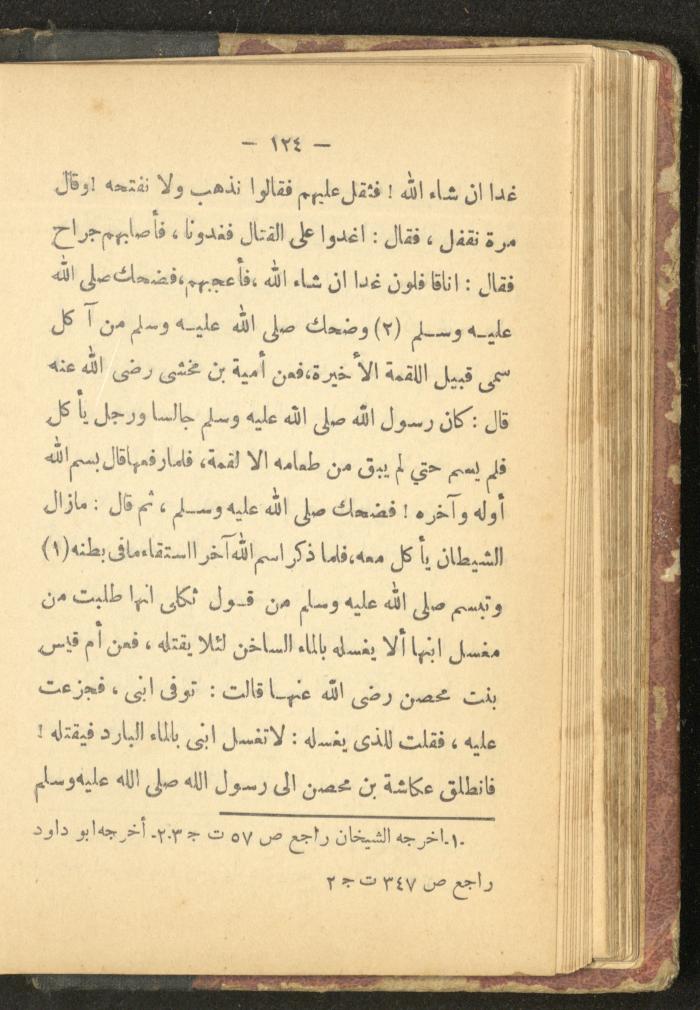 — ١٢٤ —
غدا ان شاء الله ! فثقل عليهم فقالوا نذهب ولا نفتحه ! وقال
مرة نقفل ، فقال : اغدوا على القتال فغدونا ، فأصابهم جراح
فقال : انا قافلون غدا ان شاء الله ، فأعجبهم، فضحك صلى الله
عليه وسلم (٢) وضحك صلى الله عليه وسلم من آكل
سمى قبيل اللقمة الأخيرة، فعن أمية بن مخشى رضى الله عنه
قال : كان رسول الله صلى الله عليه وسلم جالسا ورجل يأكل
فلم يسم حتي لم يبق من طعامه الا لقمة، فلما رفعها قال بسم الله
أوله وآخره ! فضحك صلى الله عليه وسلم ، ثم قال : مازال
الشيطان يأكل معه، فلما ذكر اسم الله آخر ااستقاء مافى بطنه (١)
وتبسم صلى الله عليه وسلم من قول ثكلى انها طلبت من
مغسل ابنها ألا يغسله بالماء الساخن لئلا يقتله ، فعن أم قيس
بنت محصن رضى الله عنها قالت : توفى ابنى ، فجزعت
عليه ، فقلت للذى يغسله : لا تغسل ابنى بالماء البارد فيقتله !
فانطلق عكاشة بن محصن الى رسول الله صلى الله عليه وسلم
-١- اخرجه الشيخان راجع ص ٥٧ ت ج ٣ -٢- أخرجه ابو داود
راجع ص ٣٤٧ ت ج ٢